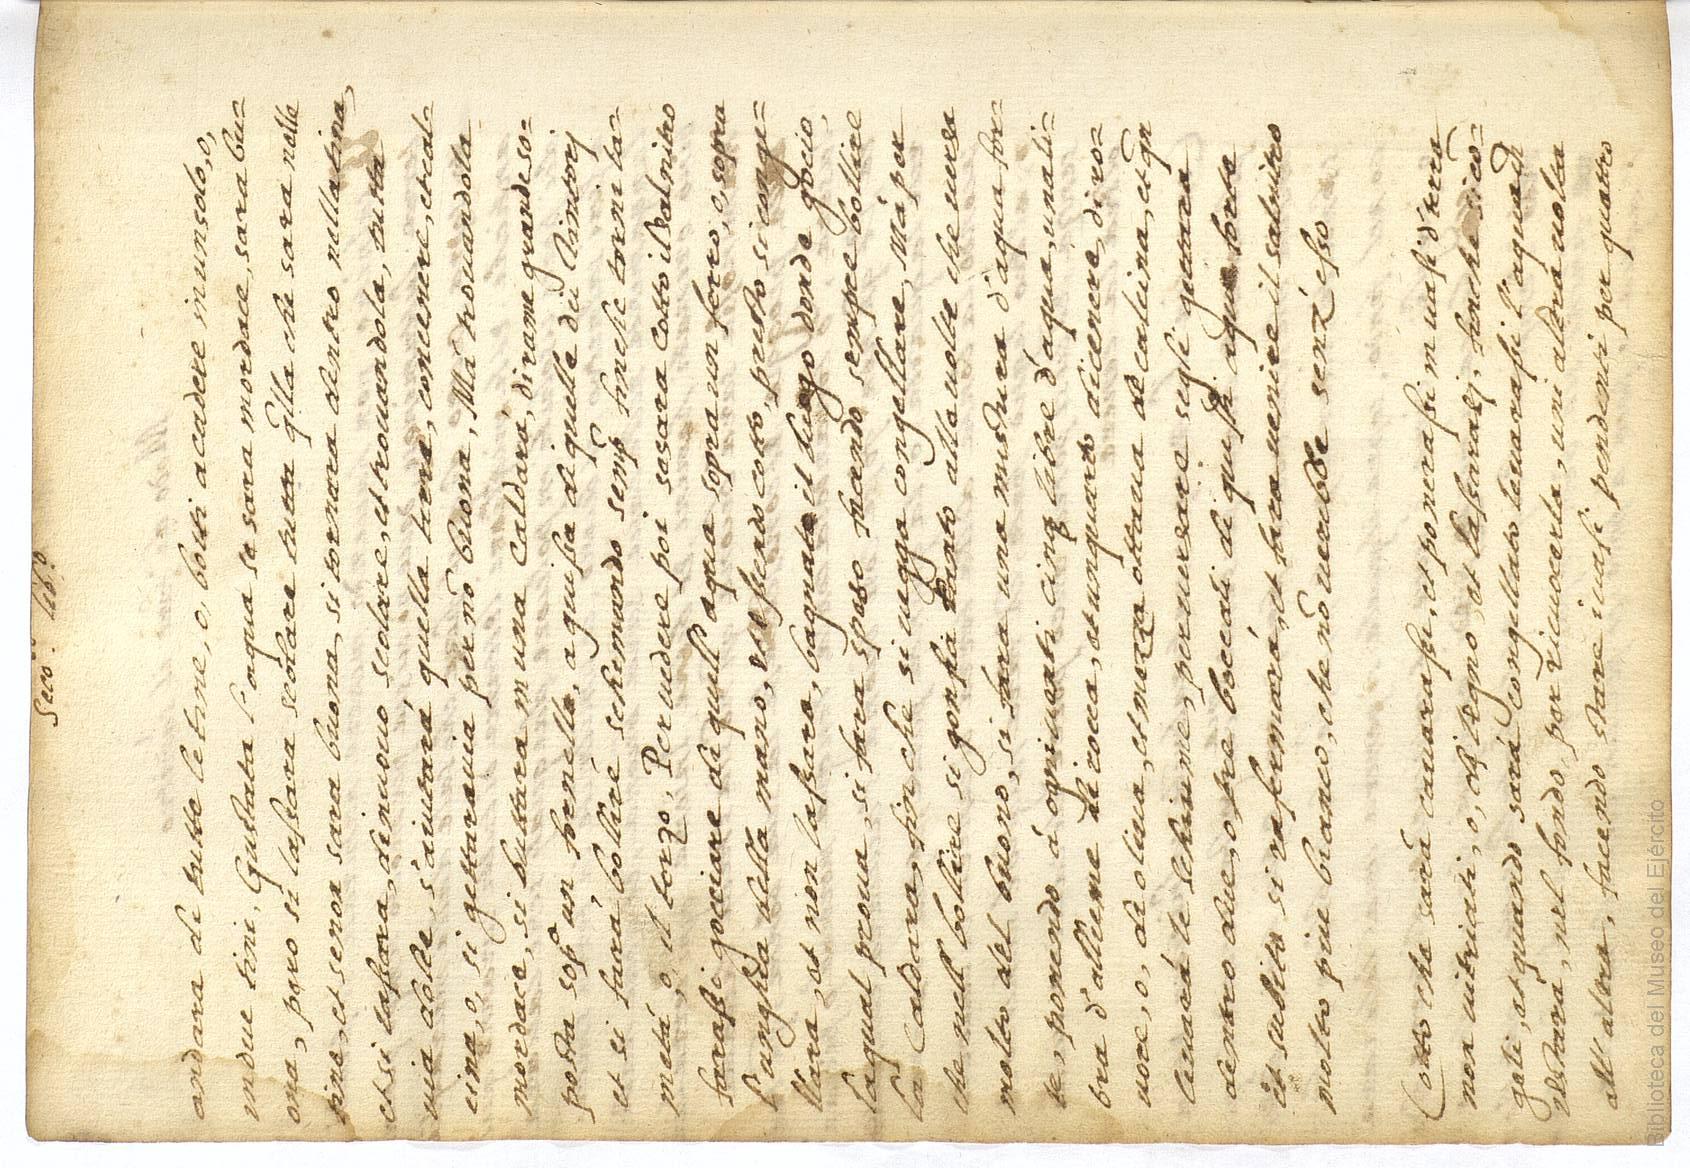 Seco.do lib.o
andara de tutte le tine, o, botti accadere in un solo, o,
indue tini, Gustata l'aqua se sara mordace, sara bu=
ona, pero si lassara scolare tutta q̃lla che sara nelle
tine, et se non sara buona, si tornara dentro nella tina,
et si lassara, de nuouo scolare, et trouandola, tutta
uia dolce, s'aiutará quella terra, con cenere, et cal=
cina, o, si gettara uia per nõ buona, Má trouandola
mordace, si buttara in una Caldara, di rame grande so=
posta sop.a un fornello, a guisa di quelle dei Tintorj
et si fará bollire schiumando semp̃ finche torni la=
metá, o, il terzo, Per uedere poi se sara cotto il salnitro
farassi gocciare di quell'aqua sopra un ferro, o, sopra
l'unghia della mano, et essendo cotto, presto si conge=
llara, et non lassara, bagnato il luogo donde gocciò,
laqual proua, si fara spesso facendo sempre bollire
la Caldara, fin che si uegga congellare, Má per
che nell bollire si gonfia tanto alle uolte che uersa
molto del buono, si fara una misura d'aqua for=
te, ponendo á ogni uenti cinq̃ libre d'aqua, una li=
bra d'allume di rocca, et un quarto di cenere, di ro=
uore, o, de oliua, et mezza ottaua de calcina, et q̃n
leuará le schiume, per uersare segli gettara
dentro due, o, tre boccali di questa aqua forte
et subito si rafermará, et fara uenire il salnitro
molto piu bianco, che nõ uerebbe senz'esso
Cotto che sará cauarassi, et ponerassi in uasi di terra
non uitriati, o, di legno, et lassarasi, finche si cõ=
geli, et quando sará congellato leuarassi l'aqua ch
restará, nel fondo, per ricuocerla, uni altra uolta
all'altra, facendo stare i uasi pendenti per quatro
Biblioteca del Museo del Ejército